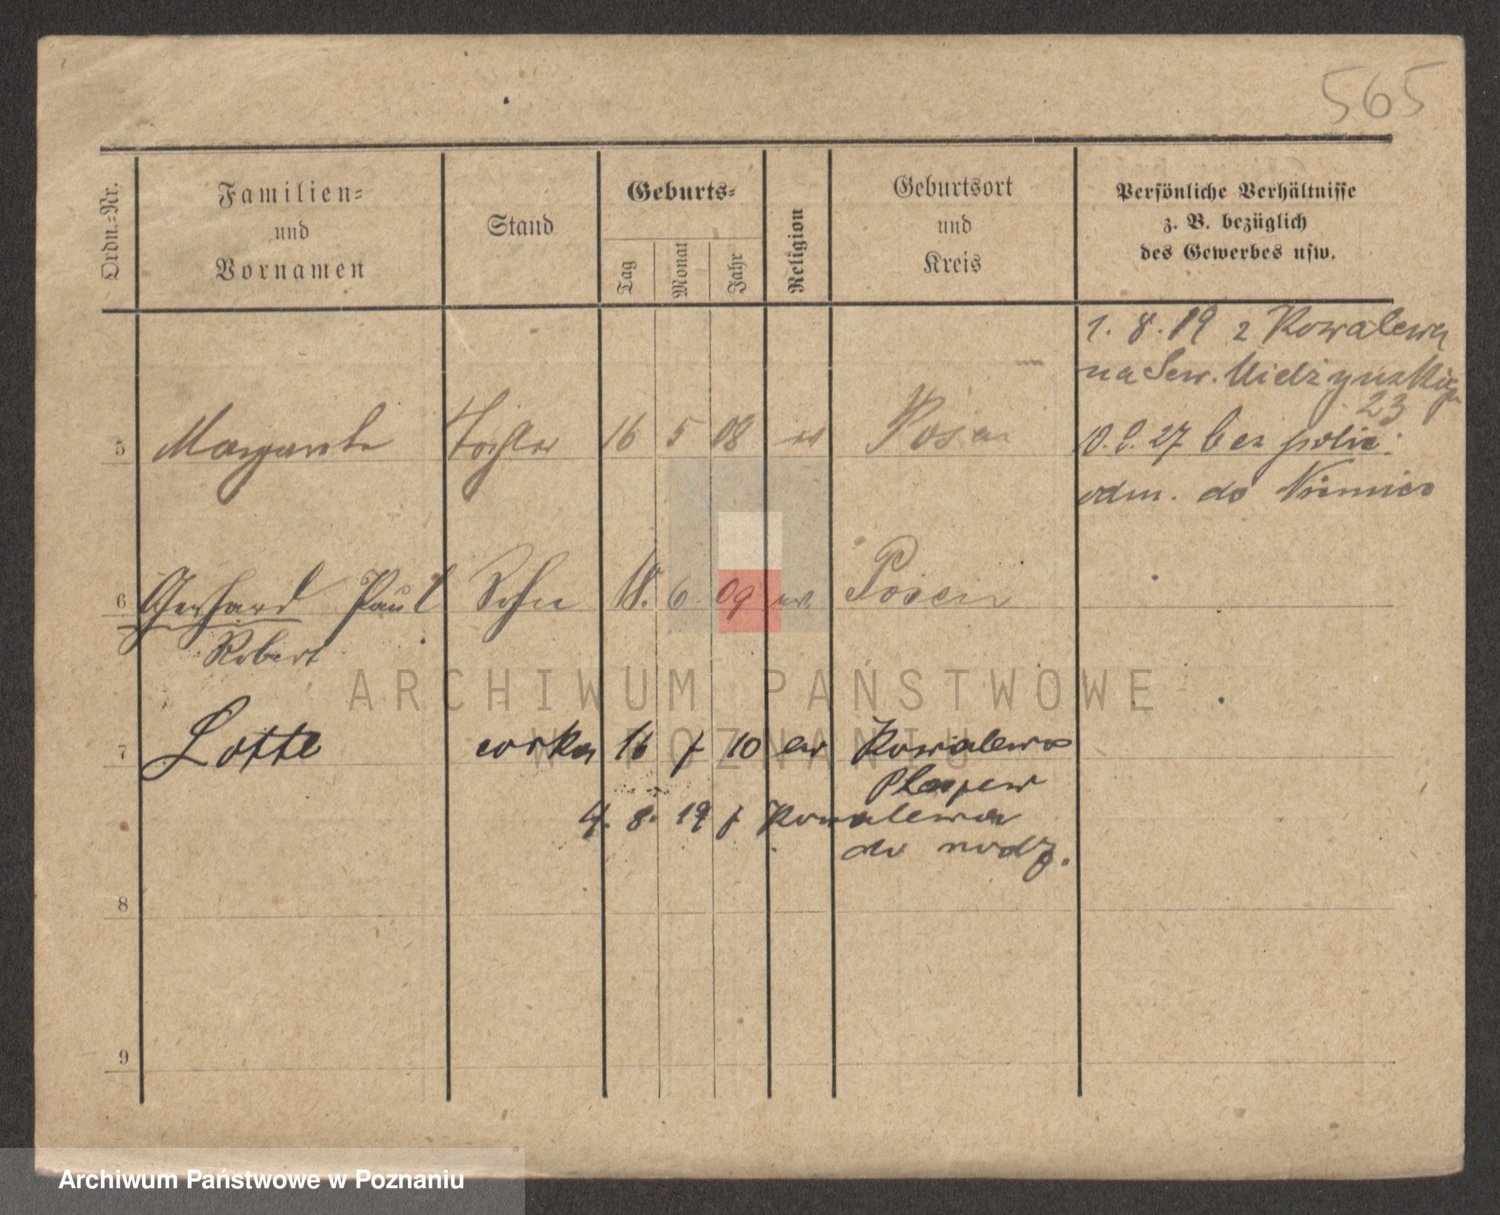 565
Ordn.-Nr.
Familien- und Vornamen
Stand
Geburts-
Tag Monat Jahr
Religion
Geburtsort und Kreis
Persönliche Verhältnisse z. B. bezüglich des Gewerbes usw.
1. 8. 19 z Kowalewa
na Sew. Mielżynskiego
23
5 Margarete Tochter 16 5 08 ev Posen
27 bez polic.
odm. do Niemiec
6 Gerhard Paul Sohn 18. 6. 09 ev. Posen
Robert
7 Lotte corka 16 7 10 ev Kowalewo
Pleszew
4. 8. 19 z Kowalewa
do rodz.
8
9
ARCHIWUM PAŃSTWOWE
W POZNANIU
Archiwum Państwowe w Poznaniu